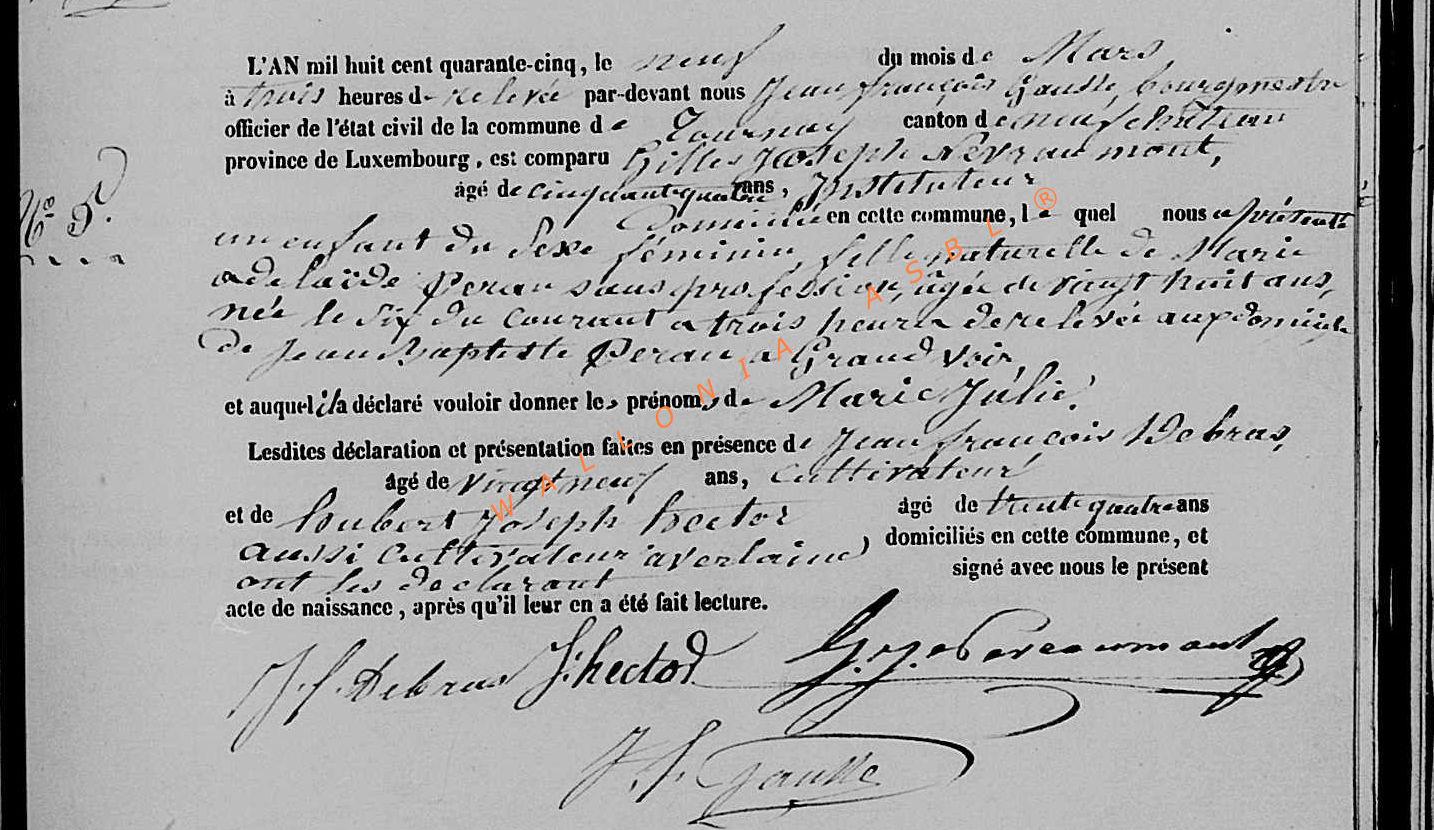 L'AN mil huit cent quarante-cinq, le neuf du mois de Mars
à trois heures de relevée par-devant nous Jean françois Gausse, bourgmestre
officier de l'état civil de la commune de Tournay canton de neufchâteau
province de Luxembourg, est comparu Gilles Joseph Nevraumont,
âgé de cinquante quatre ans, Instituteur
N° 5.
Domicilié en cette commune, le quel nous a présenté
un enfant du Sexe féminin, fille naturelle de Marie
adelaïde Perau sans profession, âgée de vingt huit ans,
née le Six du Courant a trois heures de relevée au domicile
de Jean Baptiste Perau a Grand Voir,
et auquel il a déclaré vouloir donner les prénoms de Marie Julie.
Lesdites déclaration et présentation faites en présence de Jean françois Debras,
âgé de vingt neuf ans, Cultivateur
et de hubert Joseph hector âgé de trente quatre ans
aussi Cultivateur a verlaine, domiciliés en cette commune, et
ont les declarant signé avec nous le présent
acte de naissance, après qu'il leur en a été fait lecture.
J. f. Debras J. hector G. J. Nevraumont
J. f. Gausse
WALLONIA ASBL ®